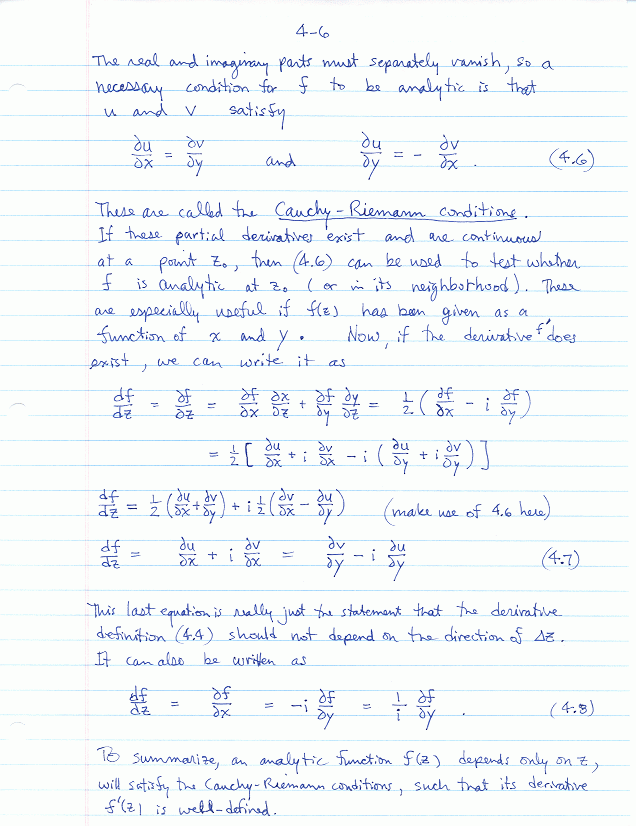 4-6
The real and imaginary parts must separately vanish, so a
necessary condition for f to be analytic is that
u and v satisfy
∂u/∂x = ∂v/∂y and ∂u/∂y = - ∂v/∂x . (4.6)
These are called the Cauchy-Riemann conditions.
If these partial derivatives exist and are continuous
at a point z₀, then (4.6) can be used to test whether
f is analytic at z₀ (or in its neighborhood). These
are especially useful if f(z) has been given as a
function of x and y. Now, if the derivative f' does
exist, we can write it as
df/dz = ∂f/∂z = ∂f/∂x ∂x/∂z + ∂f/∂y ∂y/∂z = 1/2 ( ∂f/∂x - i ∂f/∂y )
= 1/2 [ ∂u/∂x + i ∂v/∂x - i ( ∂u/∂y + i ∂v/∂y ) ]
df/dz = 1/2 ( ∂u/∂x + ∂v/∂y ) + i 1/2 ( ∂v/∂x - ∂u/∂y ) (make use of 4.6 here)
df/dz = ∂u/∂x + i ∂v/∂x = ∂v/∂y - i ∂u/∂y (4.7)
This last equation is really just the statement that the derivative
definition (4.4) should not depend on the direction of Δz.
It can also be written as
df/dz = ∂f/∂x = -i ∂f/∂y = 1/i ∂f/∂y . (4.8)
To summarize, an analytic function f(z) depends only on z,
will satisfy the Cauchy-Riemann conditions, such that its derivative
f'(z) is well-defined.